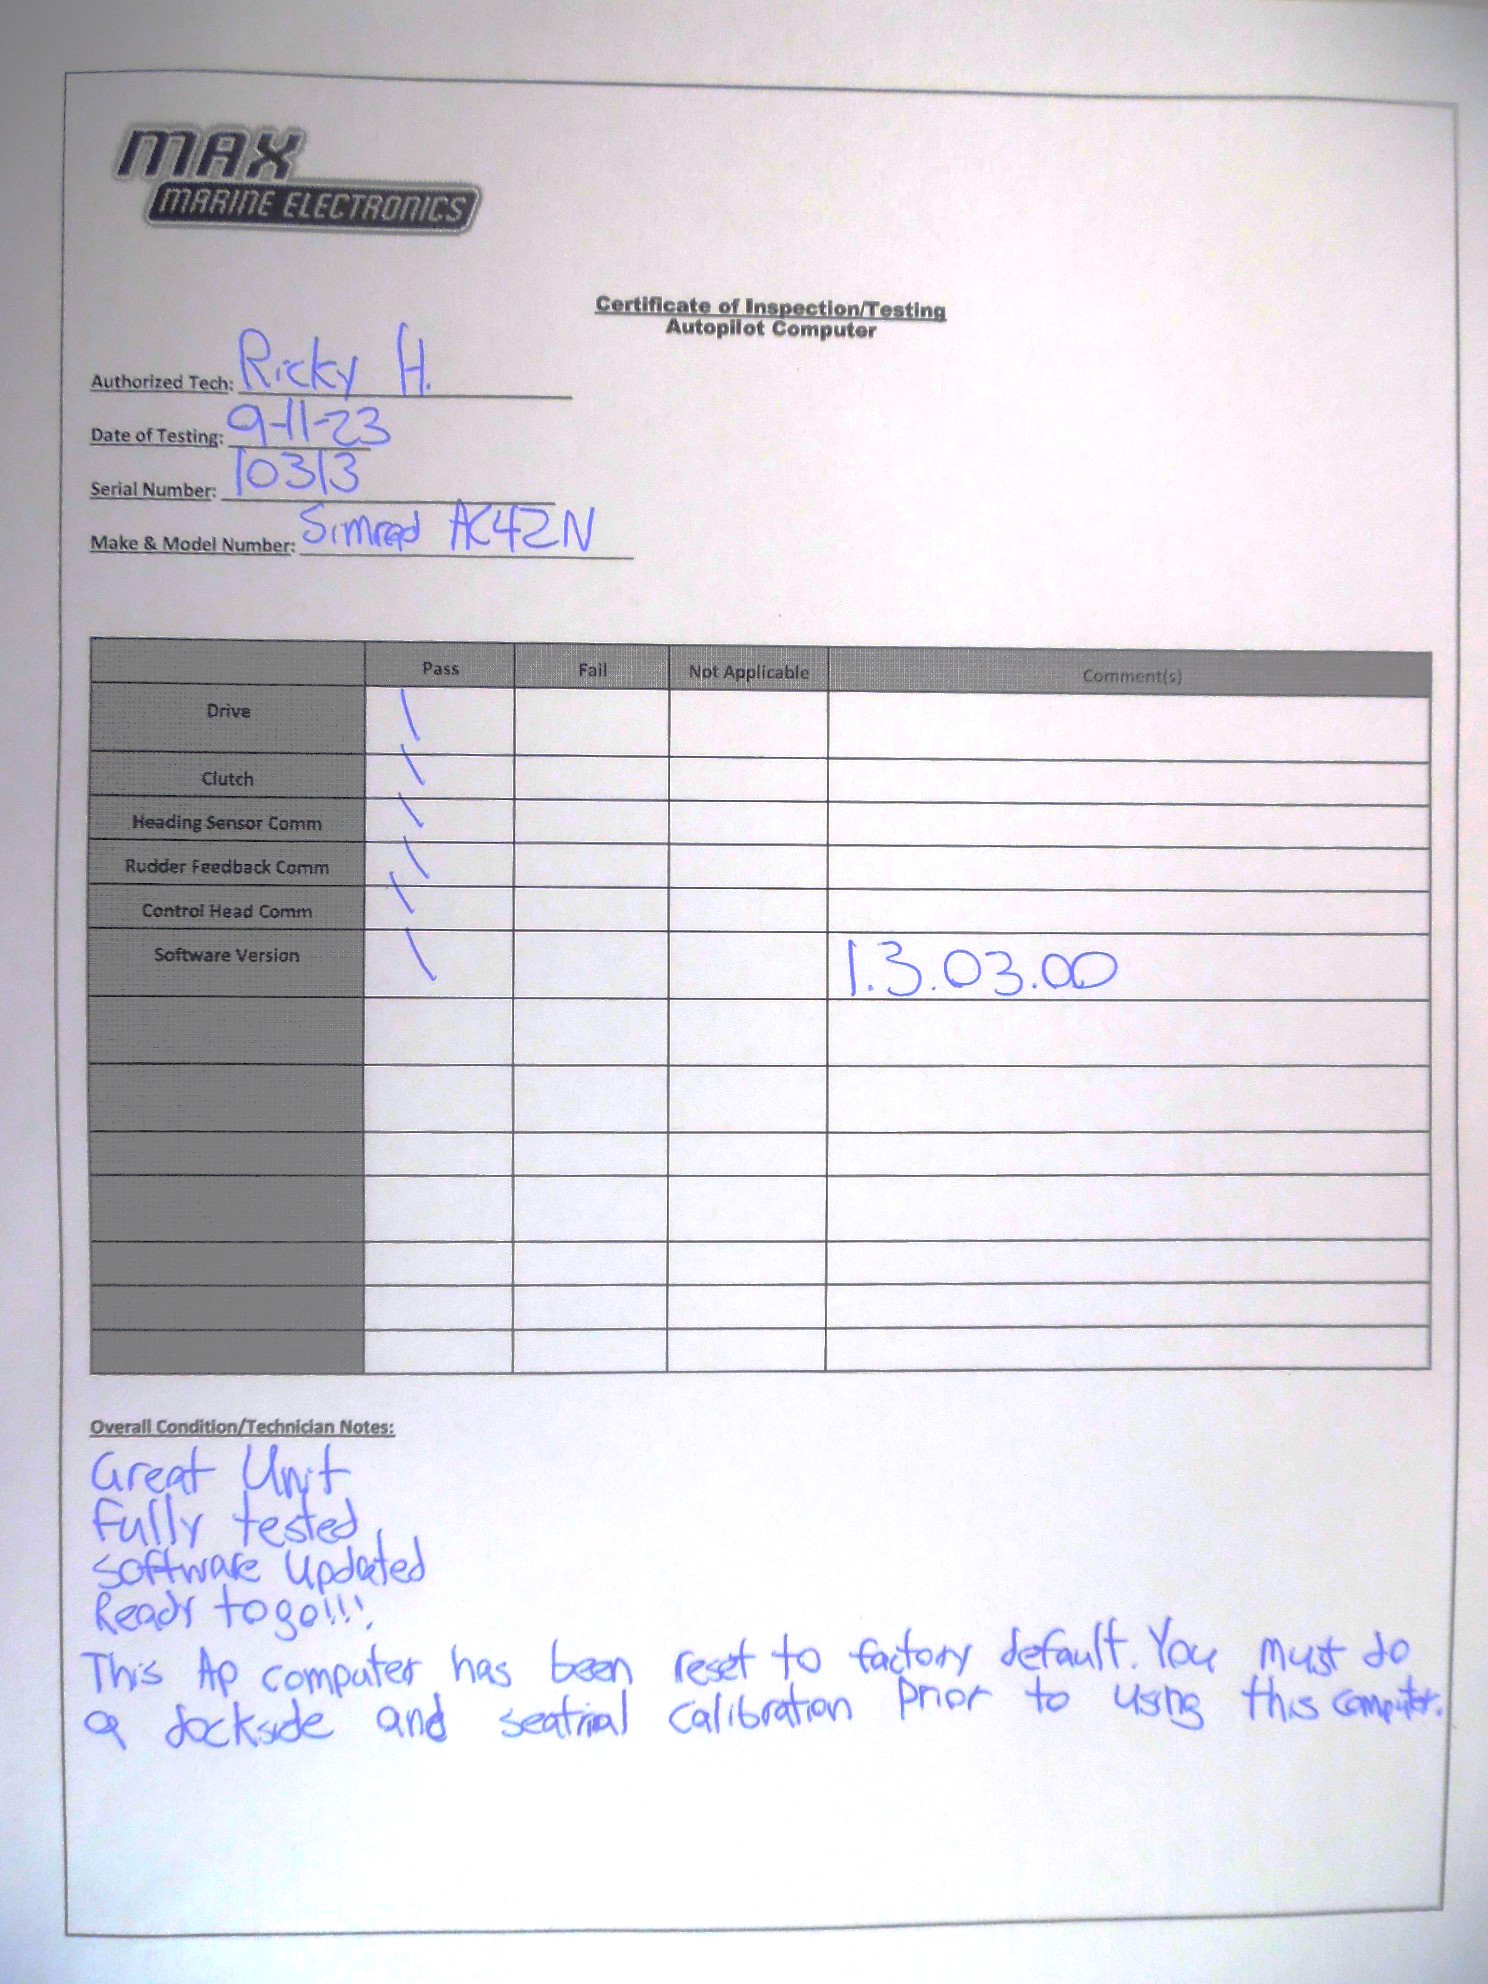 MAX
MARINE ELECTRONICS
Certificate of Inspection/Testing
Autopilot Computer
Authorized Tech: Ricky H.
Date of Testing: 9-11-23
Serial Number: 10313
Make & Model Number: Simrad AC42N
Pass Fail Not Applicable Comment(s)
Drive \
Clutch \
Heading Sensor Comm \
Rudder Feedback Comm \
Control Head Comm \
Software Version \ 1.3.03.00
Overall Condition/Technician Notes:
Great Unit
Fully tested
Software Updated
Ready to go!!!
This Ap computer has been reset to factory default. You must do
a dockside and seatrial calibration prior to using this computer.